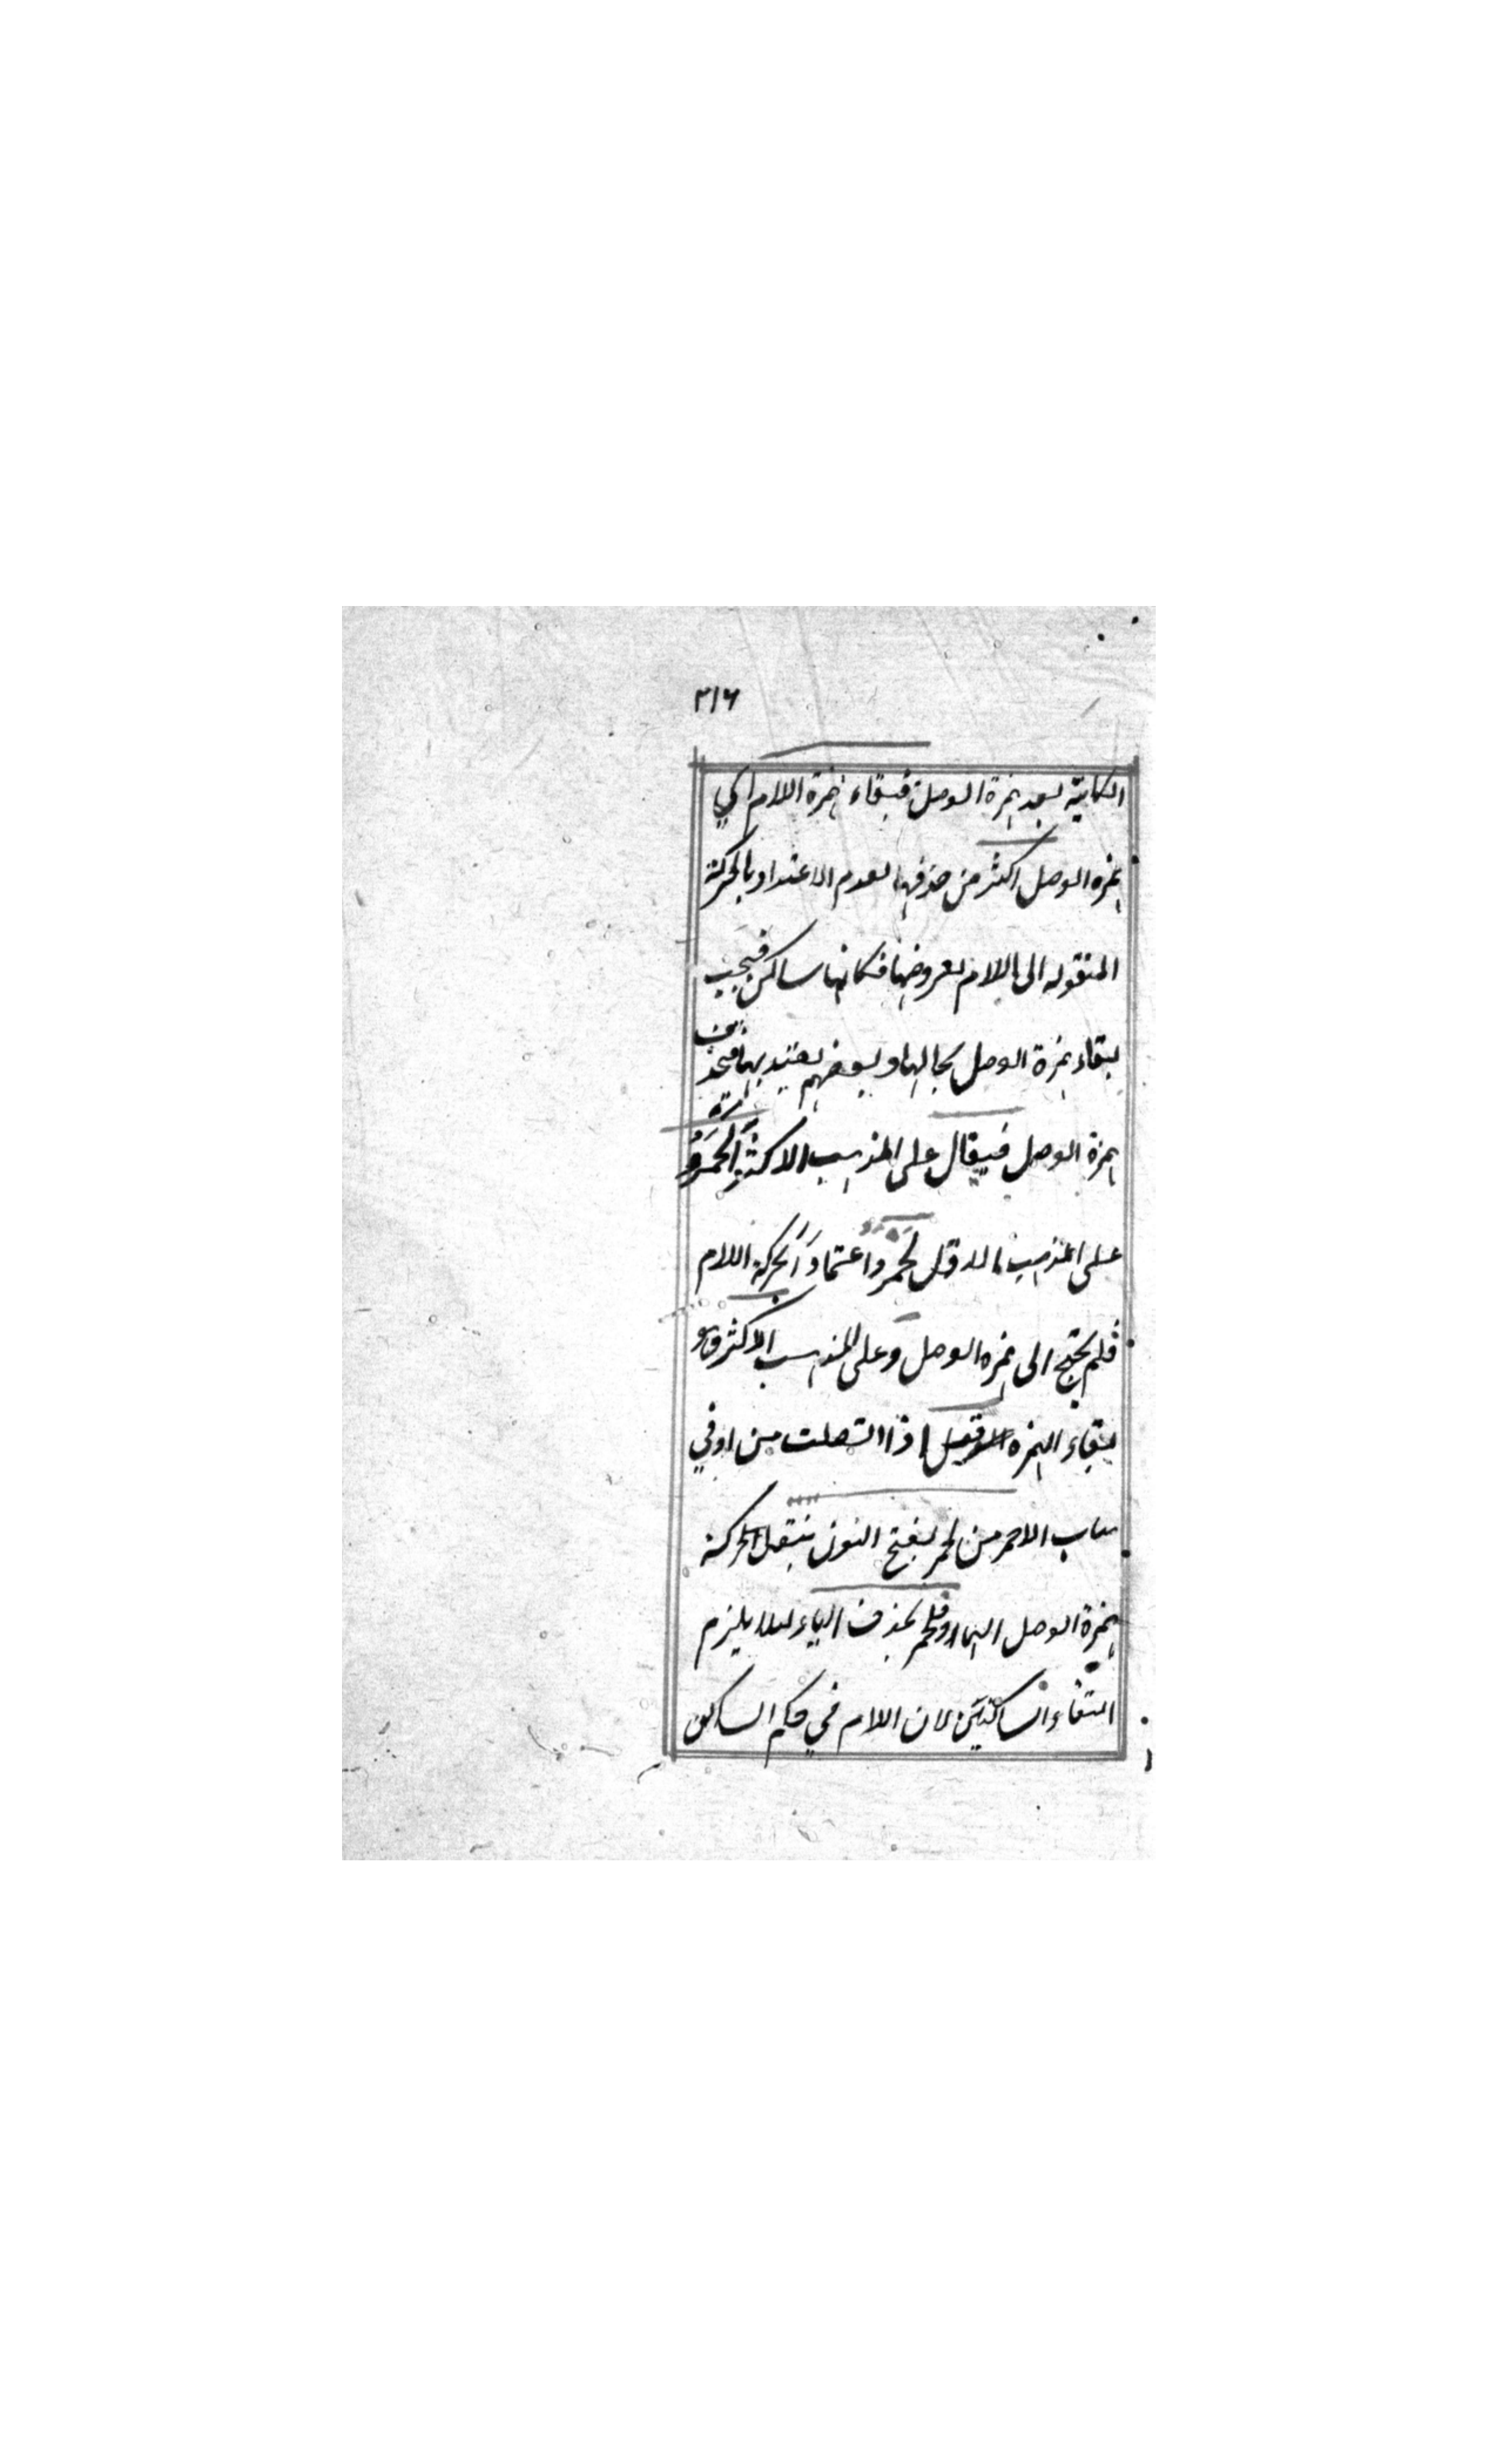 ٢١٦
الكائنة بعد همزة الوصل فبقاء همزة اللام اي
همزه الوصل اكثر من حذفها لعدم الاعتداد بالحركة
المنقوله الى اللام لعروضها فكانها ساكن فيجب
بقاء همزة الوصل بحالها وبعضهم يعتد بها فيحذف
همزة الوصل فيقال على المذهب الاكثر اَلَحْمَرُ و
على المذهب الاقل لَحْمَرُ اعتمادًا لحركة اللام
فلم يحتج الى همزه الوصل وعلى المذهب الاكثر وهو
بقاء الهمزه قيل اذا اتصلت من او في
بباب الاحمر من لحمر بفتح النون بنقل حركة
همزة الوصل اليها وفلحمر بحذف الياء لئلا يلزم
التقاء الساكنين لان اللام في حكم الساكن